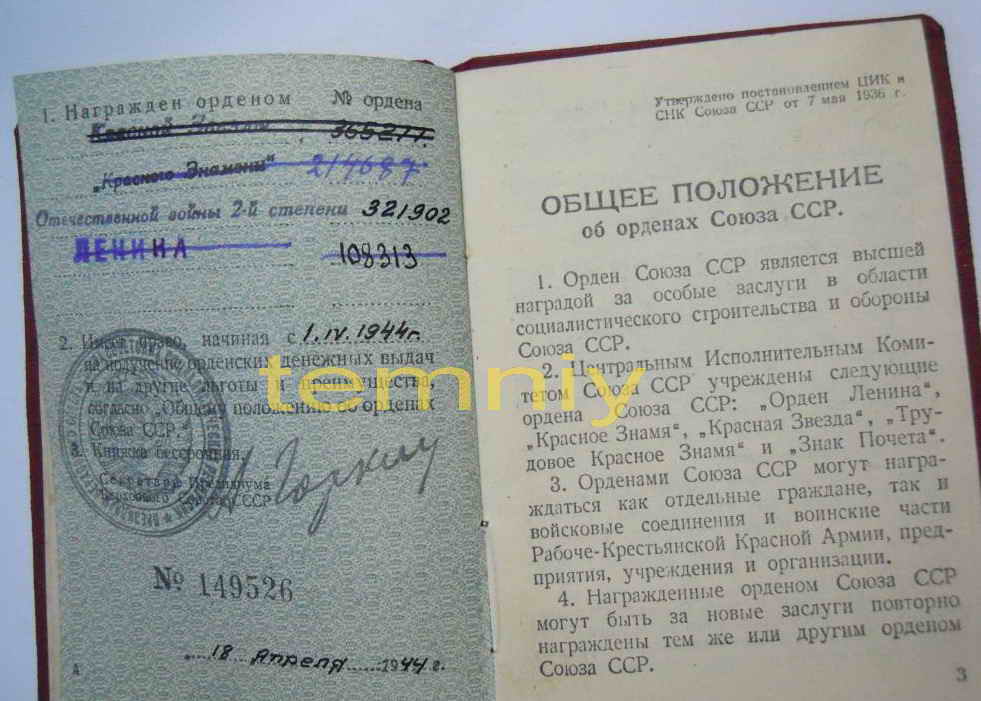 1. Награжден орденом № ордена
Красной Звезды 365277.
„Красного Знамени" 214687
Отечественной войны 2-й степени 321902
ЛЕНИНА 108313
2. Имеет право, начиная с 1.IV.1944г.
на получение орденских денежных выдач
и на другие льготы и преимущества,
согласно „Общему положению об орденах
Союза ССР."
3. Книжка бессрочная.
Секретарь Президиума
Верховного Совета СССР
А Горкин
№ 149526
18 Апреля 1944 г.
А
Утверждено постановлением ЦИК и
СНК Союза ССР от 7 мая 1936 г.
ОБЩЕЕ ПОЛОЖЕНИЕ
об орденах Союза ССР.
1. Орден Союза ССР является высшей
наградой за особые заслуги в области
социалистического строительства и обороны
Союза ССР.
2. Центральным Исполнительным Коми-
тетом Союза ССР учреждены следующие
ордена Союза ССР: „Орден Ленина",
„Красное Знамя", „Красная Звезда", „Тру-
довое Красное Знамя" и „Знак Почета".
3. Орденами Союза ССР могут награ-
ждаться как отдельные граждане, так и
войсковые соединения и воинские части
Рабоче-Крестьянской Красной Армии, пред-
приятия, учреждения и организации.
4. Награжденные орденом Союза ССР
могут быть за новые заслуги повторно
награждены тем же или другим орденом
Союза ССР.
3
temniy